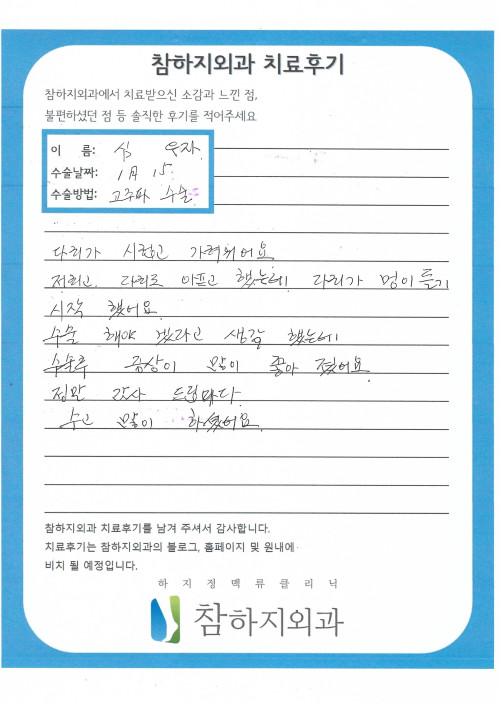 참하지외과 치료후기
참하지외과에서 치료받으신 소감과 느낀 점,
불편하셨던 점 등 솔직한 후기를 적어주세요
이 름: 심 우자
수술날짜: 1月 15.
수술방법: 고주파 수술
다리가 시렵고 가려워어요
저리고 다리로 아프고 했는데 다리가 멍이 들기
시작 했어요.
수술 해야 겠다고 생각 했는데
수술후 증상이 많이 좋아 졌어요.
정말 감사 드립니다.
수고 많이 하셨어요.
참하지외과 치료후기를 남겨 주셔서 감사합니다.
치료후기는 참하지외과의 블로그, 홈페이지 및 원내에
비치 될 예정입니다.
하지정맥류클리닉
참하지외과